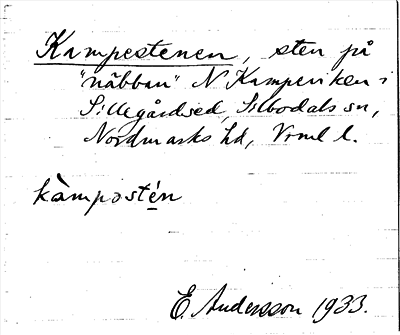 Kampestenen, sten på
"näbban" N Kampeviken i
Sillegårdsed, Silbodals sn,
Nordmarks hd, Vrml l.
kàmpostén
E. Andersson 1933.